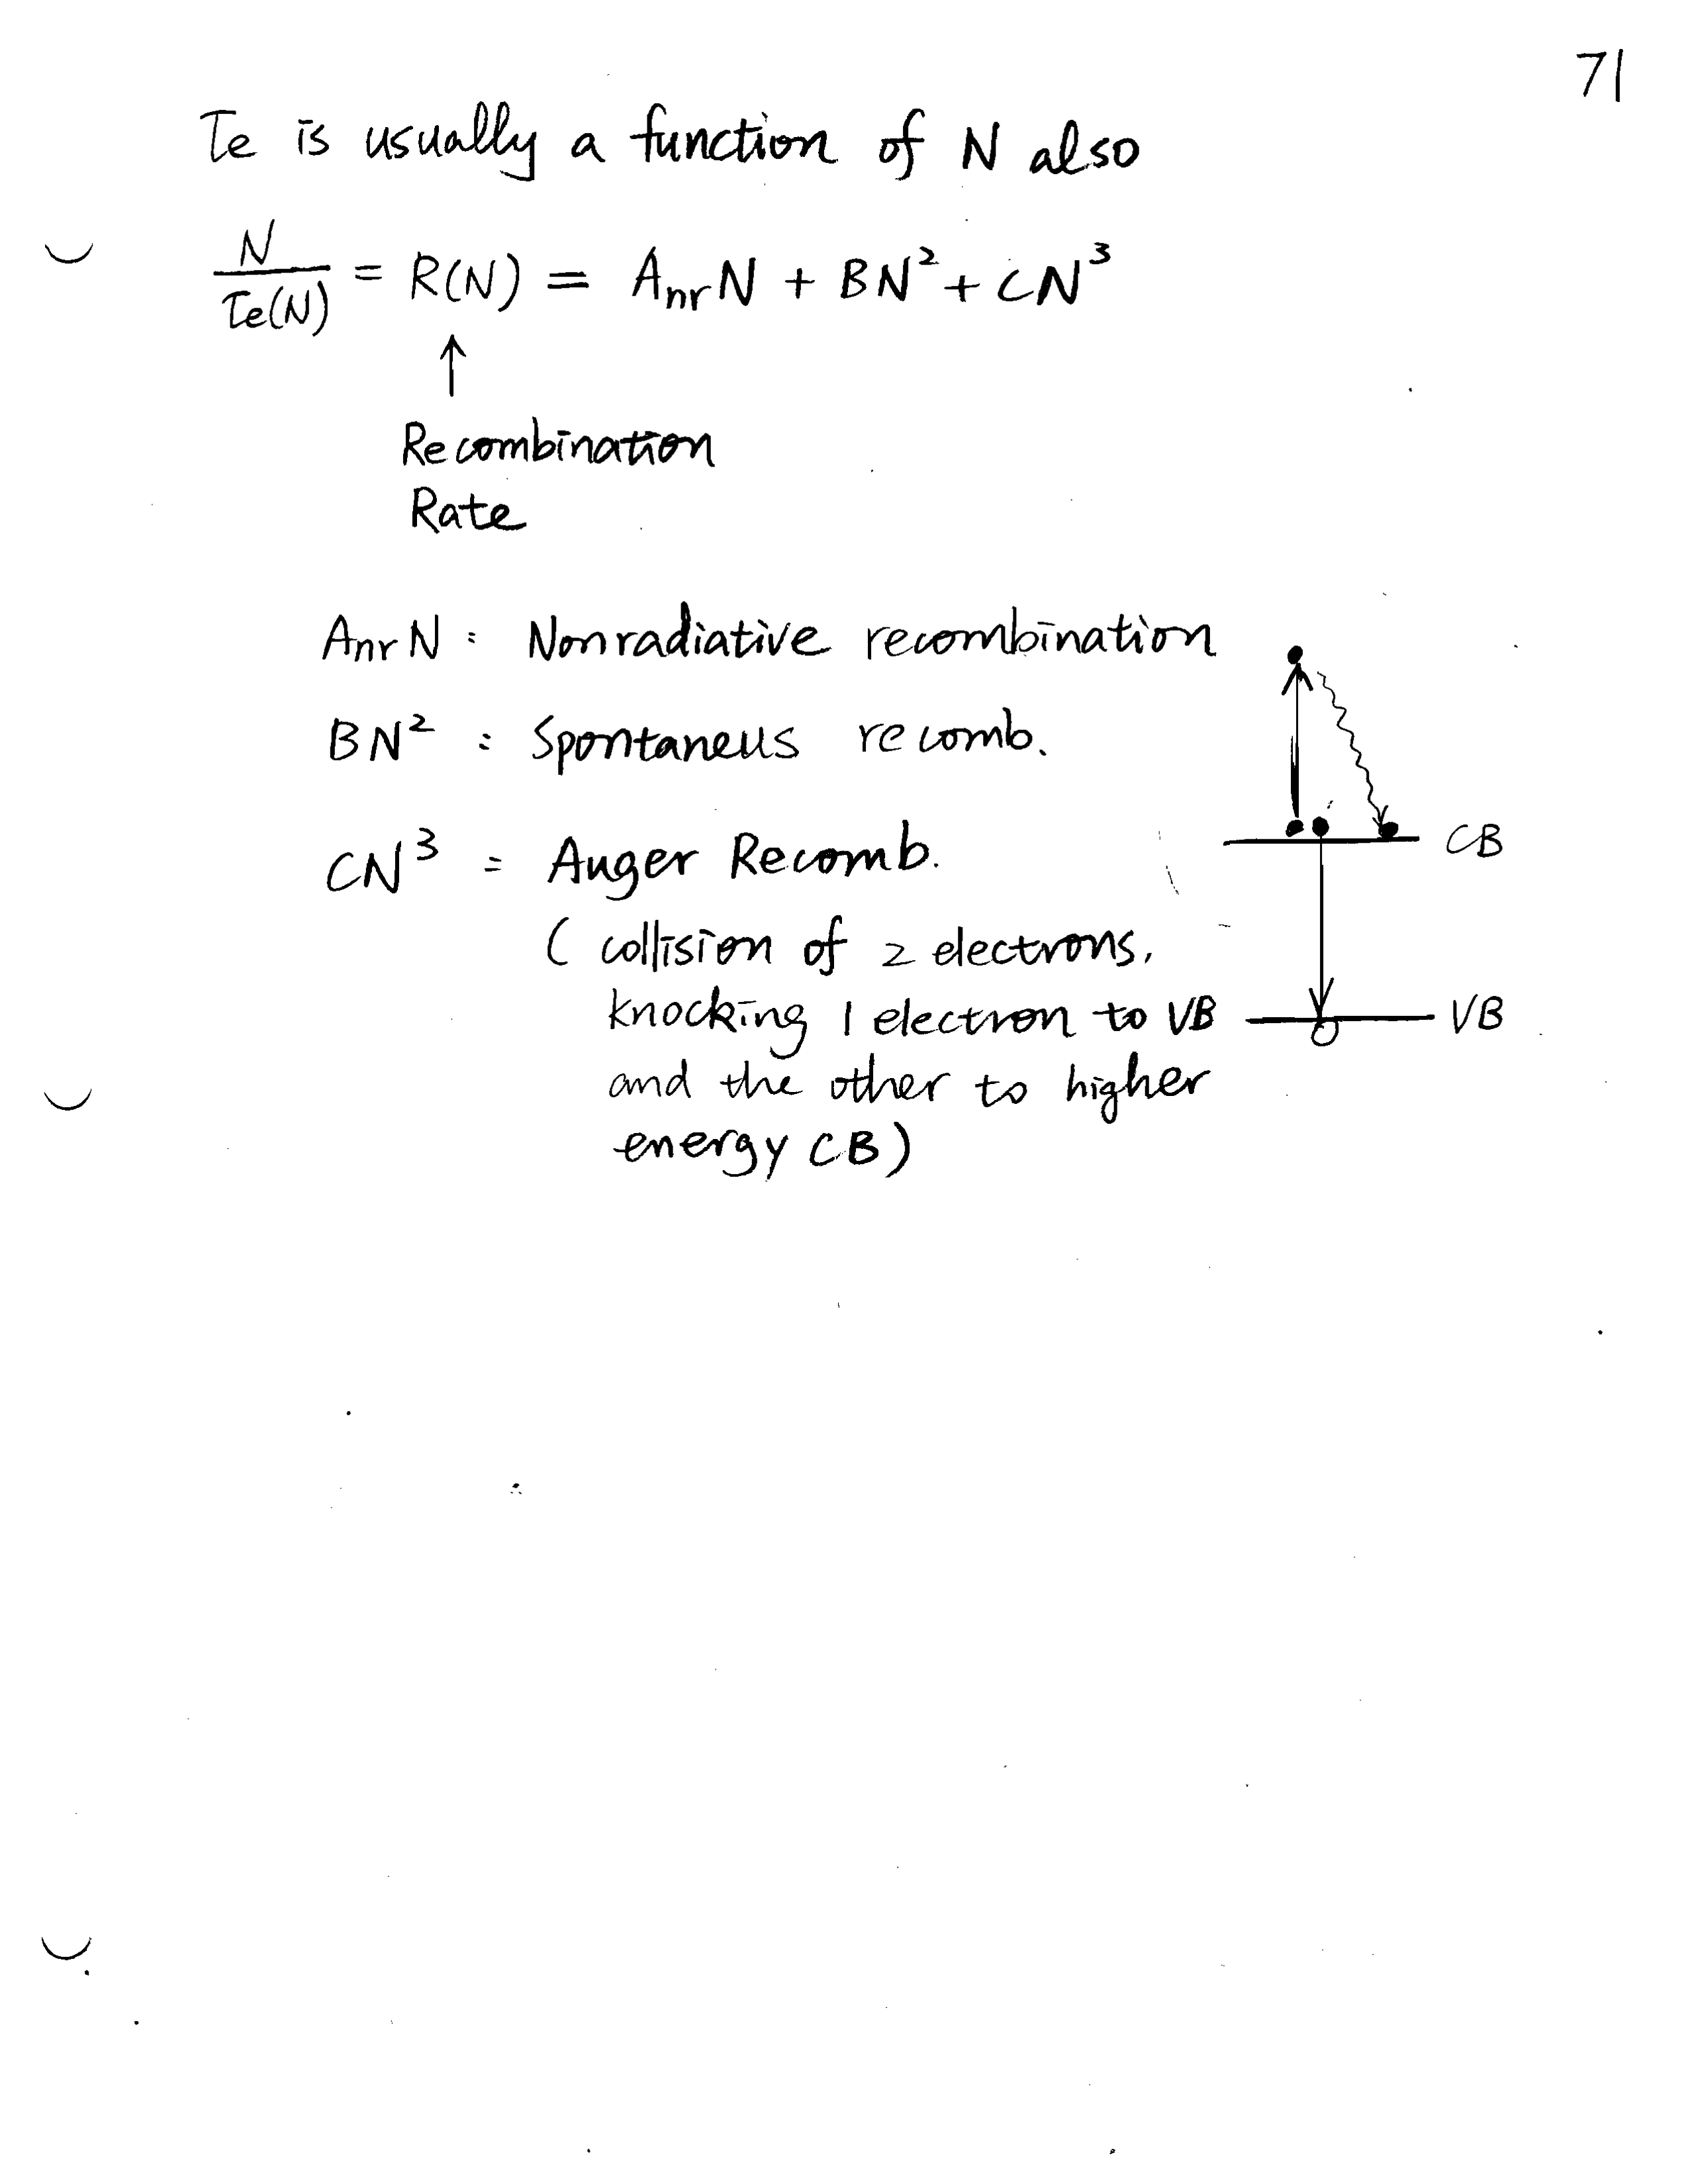 71
τe is usually a function of N also
N/τe(N) = R(N) = AnrN + BN² + CN³
↑
Recombination
Rate
AnrN : Nonradiative recombination
BN² : Spontaneus recomb.
CN³ = Auger Recomb.
( collision of 2 electrons,
knocking 1 electron to VB
and the other to higher
energy CB)
CB
VB